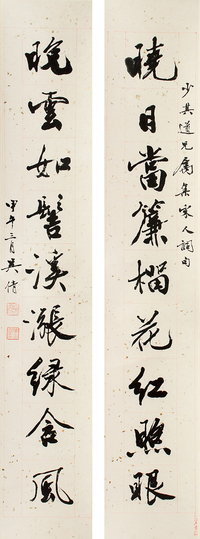 少其道兄属集宋人词句
曉日當簾榴花紅照眼
晚雲如髻溪漲綠含風
甲午三月吳倩